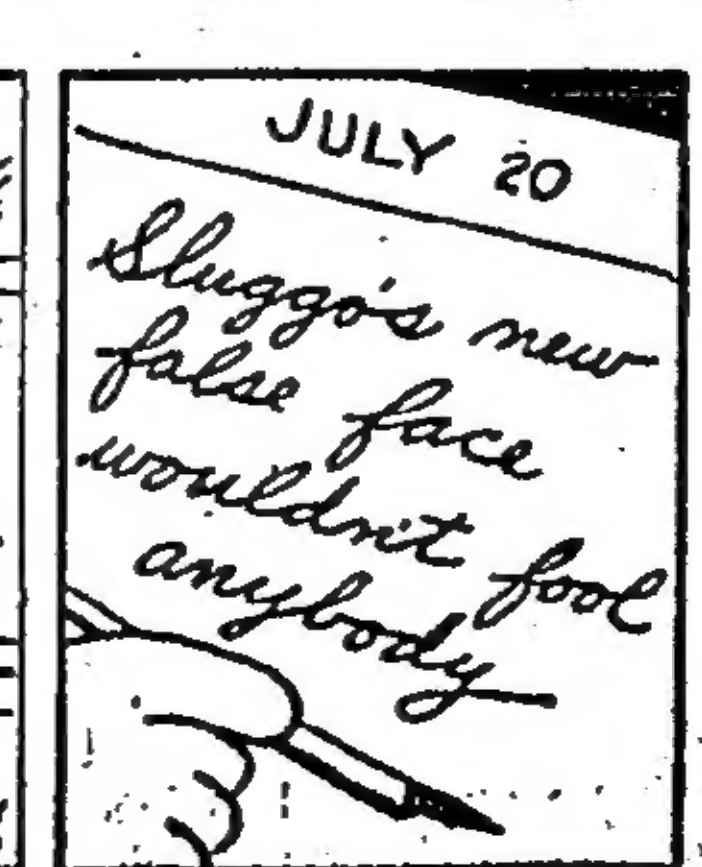 JULY 20
Sluggo's new
false face
wouldn't fool
anybody—